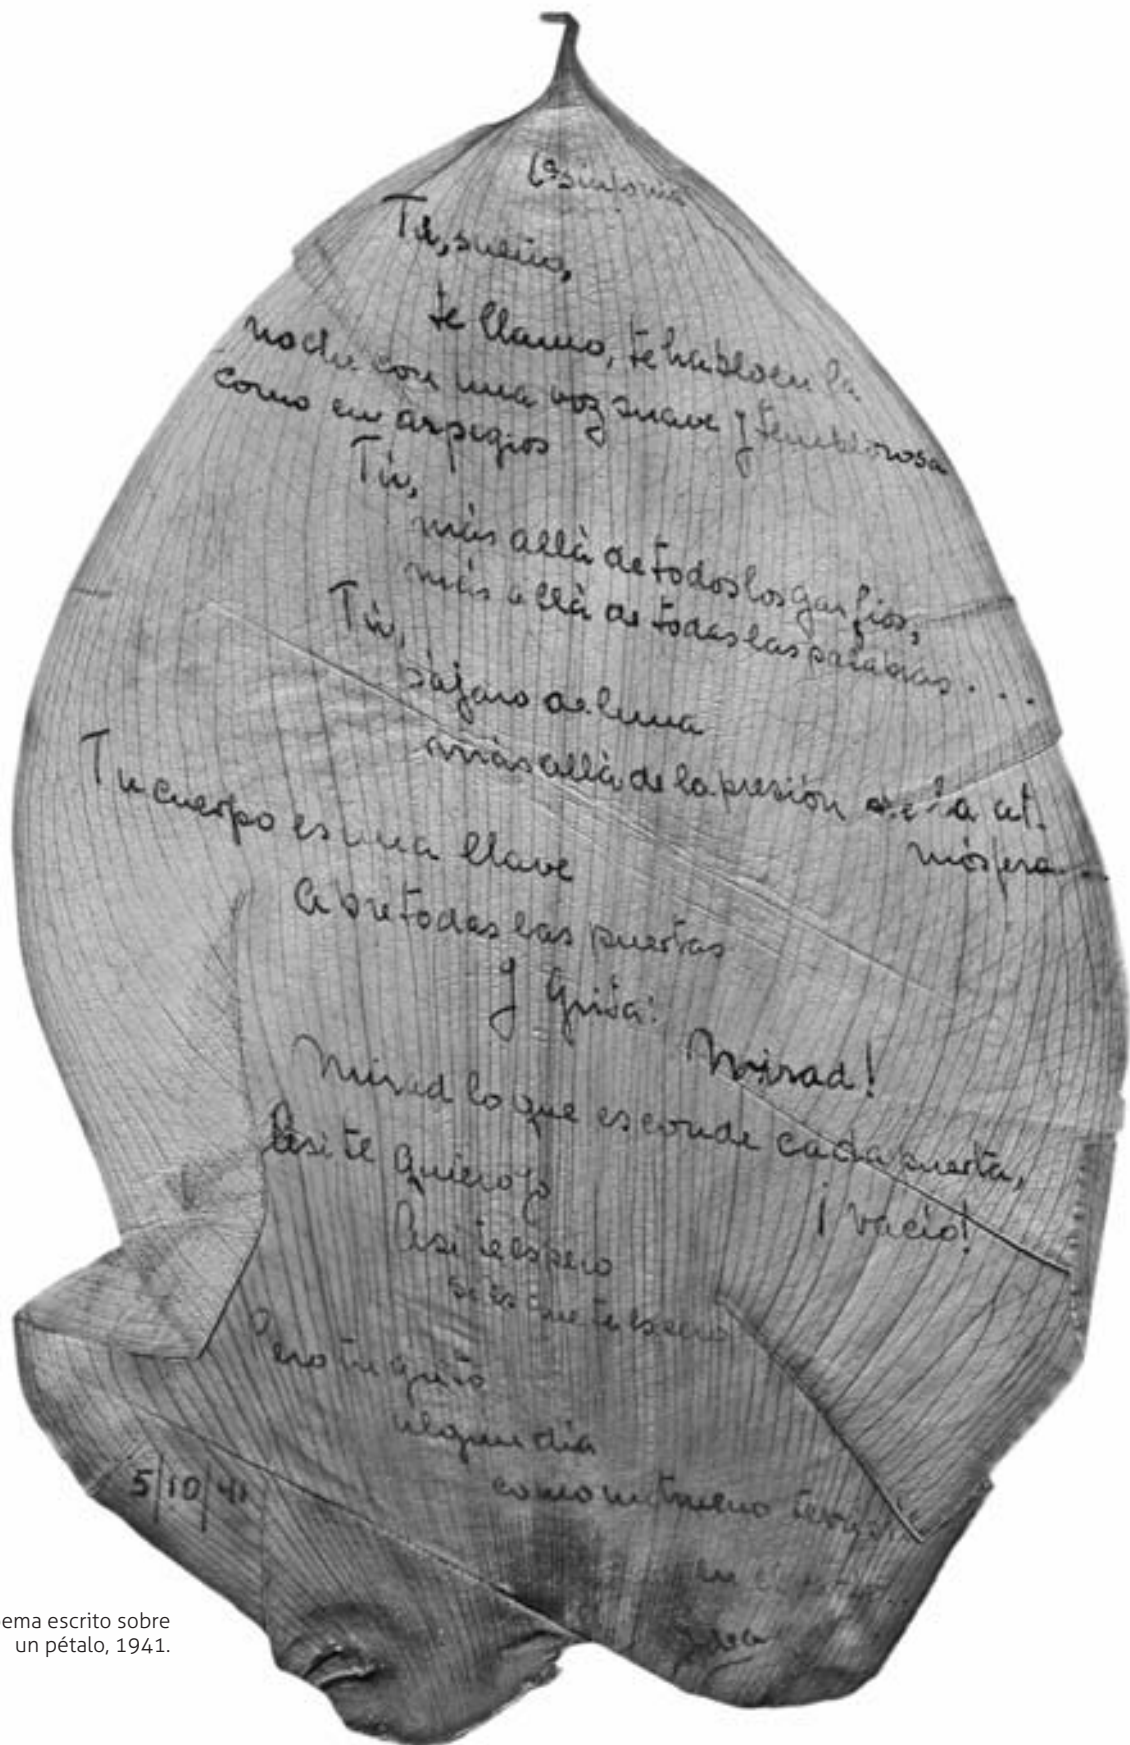 1ª sinfonía
Tú, sueño,
te llamo, te hablo en la
noche con una voz suave y temblorosa
como en arpegios
Tú,
más allá de todos los garfios,
más allá de todas las palabras . . .
Tú,
pájaro de luna
más allá de la presión de la at.
mósfera...
Tu cuerpo es una llave
abre todas las puertas
y grita:
Mirad!
Mirad lo que esconde cada puerta,
¡vacío!
Así te quiero yo
Así te espero
si es que te espero
Pero tu grito
algún día
como un trueno
en el
5/10/41
ema escrito sobre
un pétalo, 1941.